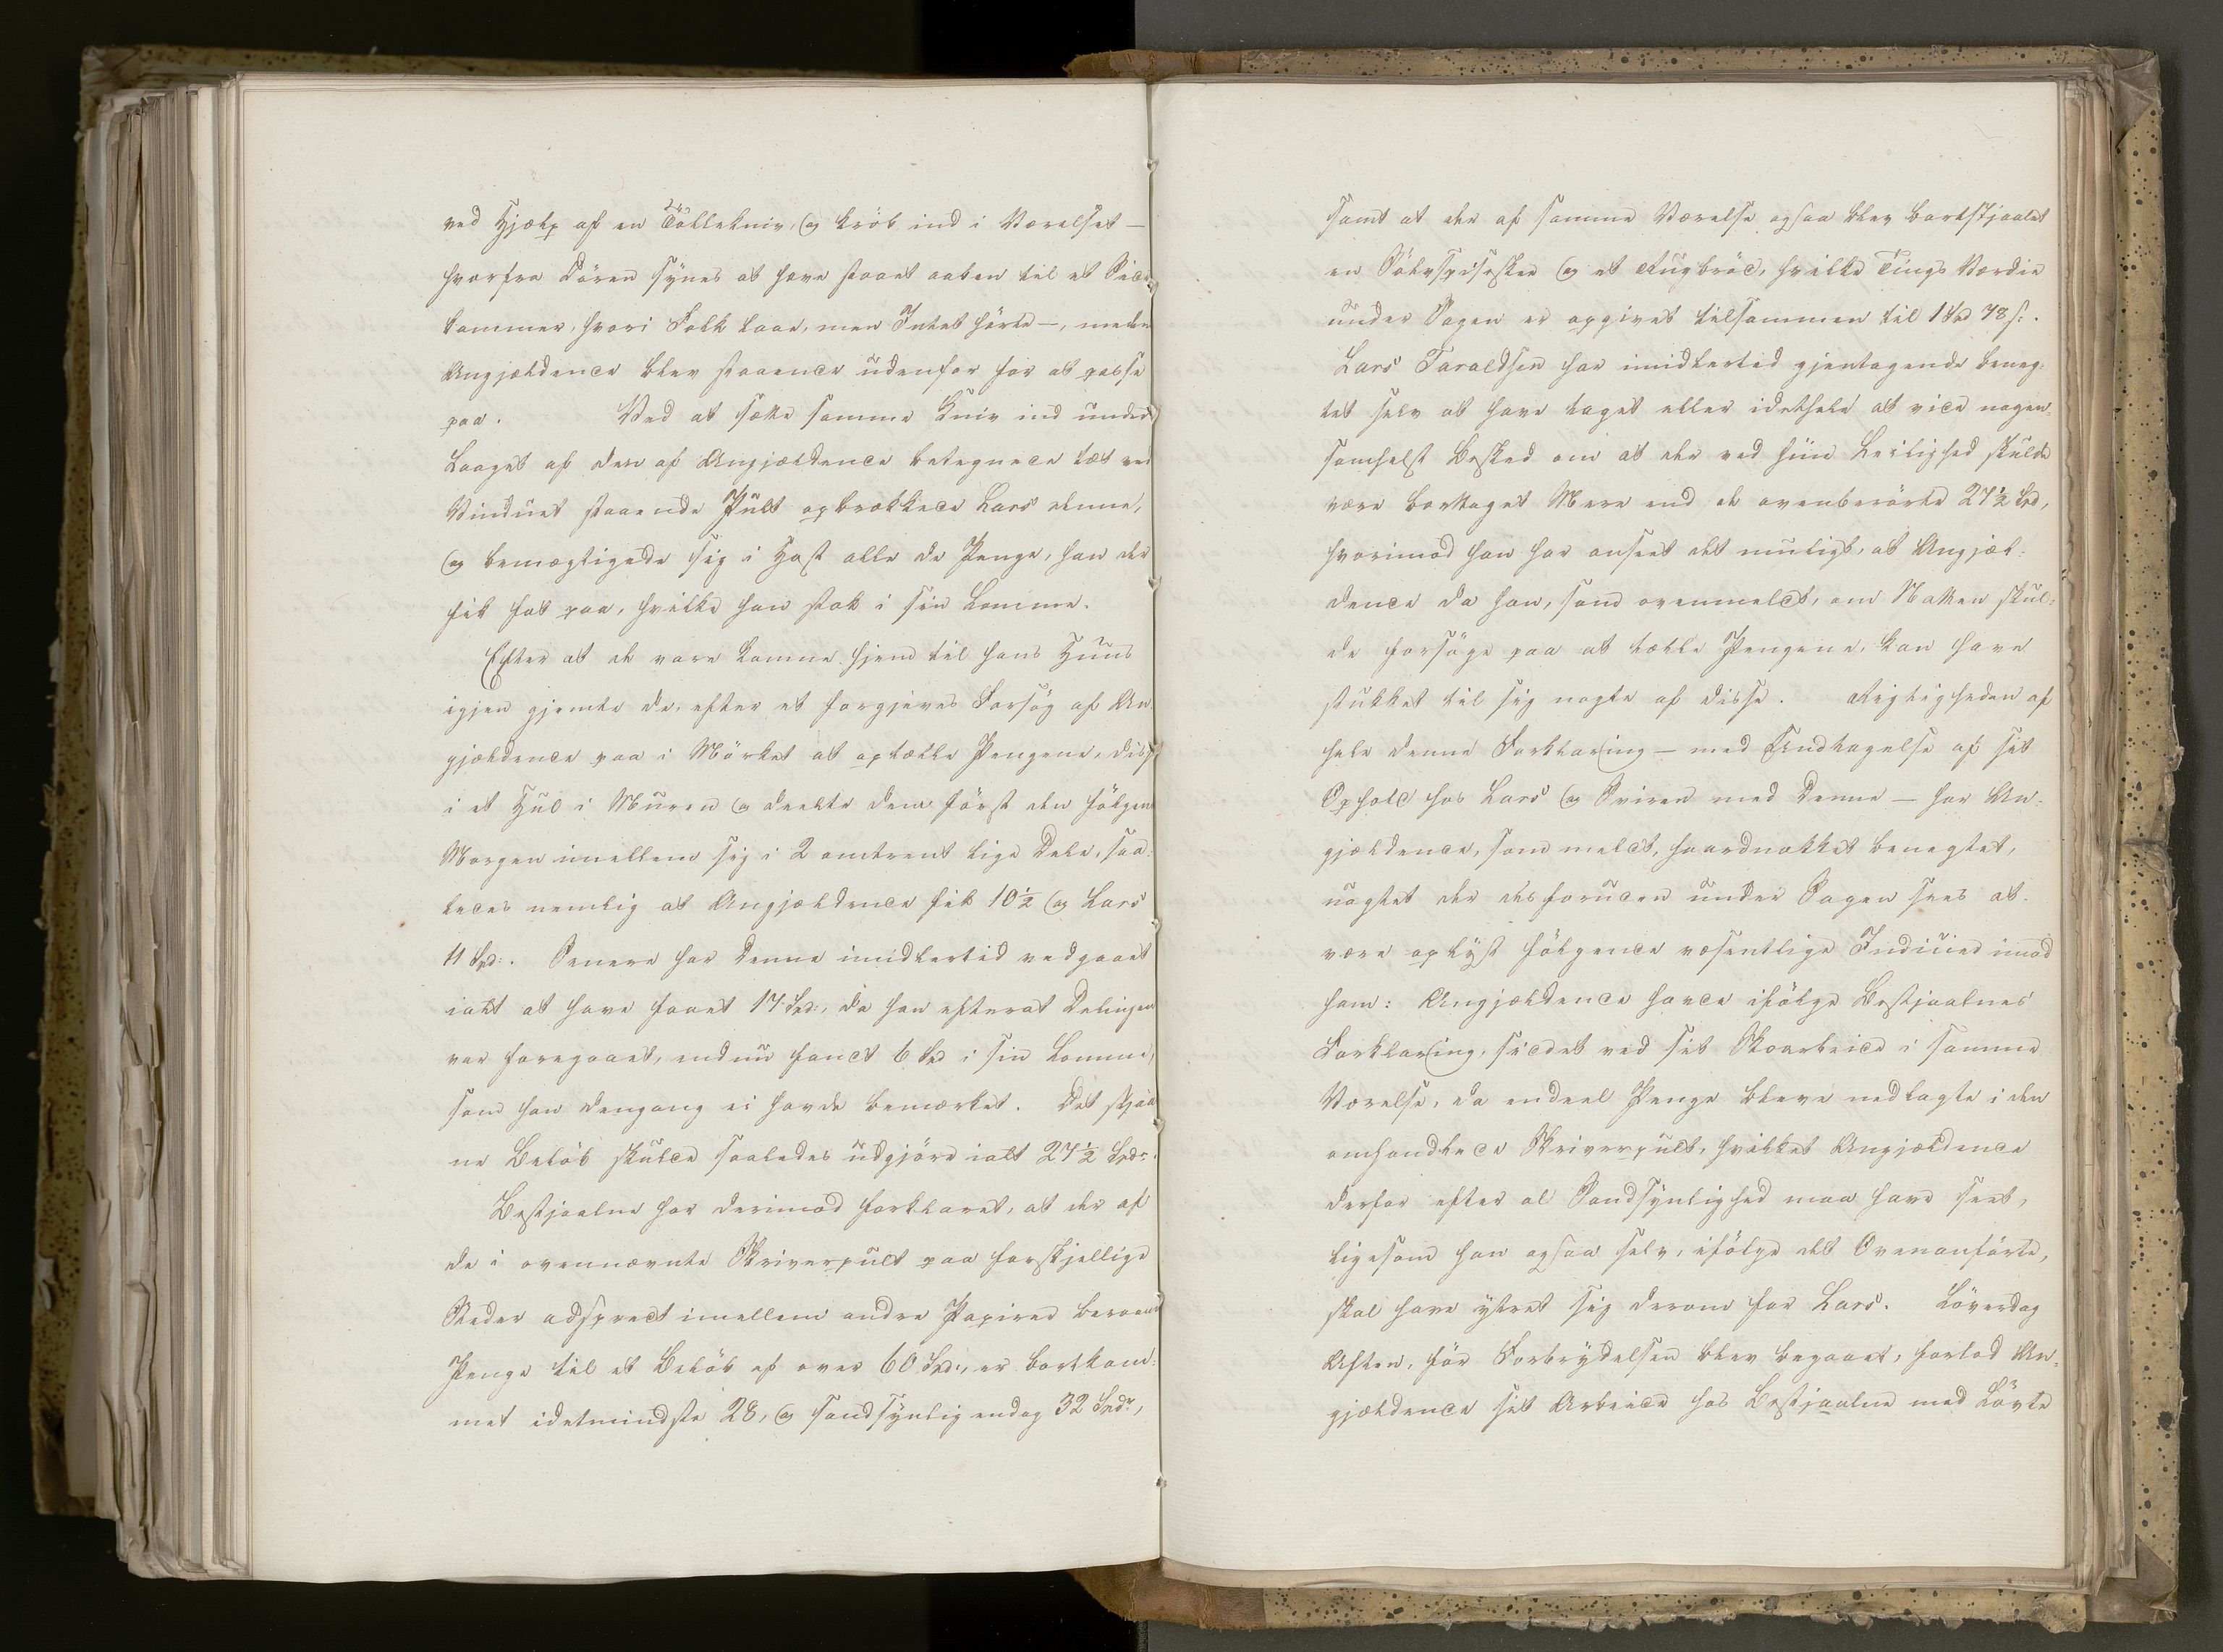 ved Hjælp af en Tollekniv, og kröb ind i Værelset —
hvorfra Dören synes at have staaet aaben til et Side
kammer, hvori Folk laae, men Intet hörte —, meden
Angjældende blev staaende udenfor for at passe
paa. Ved at sætte samme Kniv ind under
Laaget af den af Angjældende betegnede tæt ved
Vinduet staaende Pult opbrækkede Lars denne,
og bemægtigede sig i Hast alle de Penge, han der
fik fat paa, hvilke han stak i sin Lomme.
Efter at de vare komne hjem til hans Huus
igjen gjemte de, efter et forgjæves Forsög af An
gjældende paa i Mörket at optælle Pengene, disse
i et Hul i Muren og deelte dem först den fölgen
Morgen imellem sig i 2 omtrent lige Dele, saa
ledes nemlig at Angjældende fik 10½ og Lars
11 Spd:. Senere har Denne imidlertid vedgaaet
ialt at have faaet 17 Spd:, da han efterat Delingen
var foregaaet, endnu fandt 6 Spd i sin Lomme,
som han dengang ei havde bemærket. Det stjaa
ne Belöb skulde saaledes udgjöre ialt 27½ Spdr.
Bestjaalne har derimod forklaret, at der af
de i ovennævnte Skriverpult paa forskjellige
Steder adspredt imellem andre Papirer beroend
Penge til et Belöb af over 60 Spd:, er bortkom:
met idetmindste 28, og sandsynlig endog 32 Spdr,
samt at der af samme Værelse ogsaa blev bortstjaalet
en Sölvspiseskee og et Rugbröd, hvilke Tings Værdie
under Sagen er opgivet tilsammen til 1 Spd 78 s:.
Lars Taraldsen har imidlertid gjentagende beneg:
tet selv at have taget eller idethele at vide nogen,
somhelst Besked om at der ved hiin Leilighed skulde
være borttaget Mere end de ovenberörte 27½ Spd,
hvorimod han har anseet det muligt, at Angjæl:
dende da han, som ovenmeldt, om Natten skul:
de forsöge paa at tælle Pengene, kan have
stukket til sig nogle af disse. Rigtigheden af
hele denne Forklaring — med Undtagelse af sit
Ophold hos Lars og Sviren med Denne — har An:
gjældende, som meldt, haardnakket benegtet,
uagtet der desforuden under Sagen sees at
være oplyst fölgende væsentlige Indicier imod
ham: Angjældende havde ifölge Bestjaalnes
Forklaring, siddet ved sit Skoarbeide i samme
Værelse, da endeel Penge bleve nedlagte i den
omhandlede Skriverpult, hvilket Angjældende
derfor efter al Sandsynlighed maa have seet,
ligesom han ogsaa selv, ifölge det Ovenanförte,
skal have yttret sig derom for Lars. Löverdag
Aften, för Forbrydelsen blev begaaet, forlod An:
gjældende sit Arbeide hos Bestjaalne med Lövte